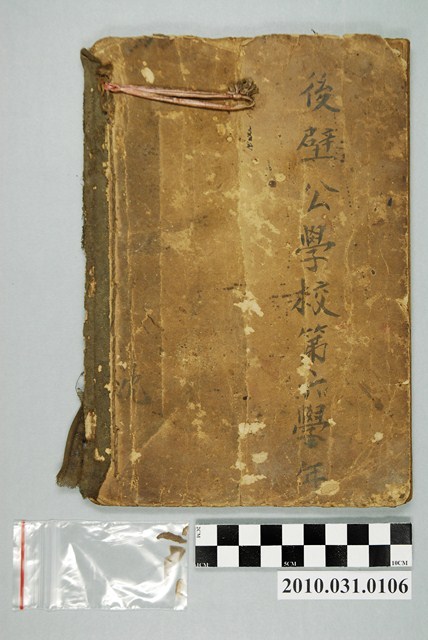 後壁公學校第六學年
1CM
5CM
10CM
2010.031.0106